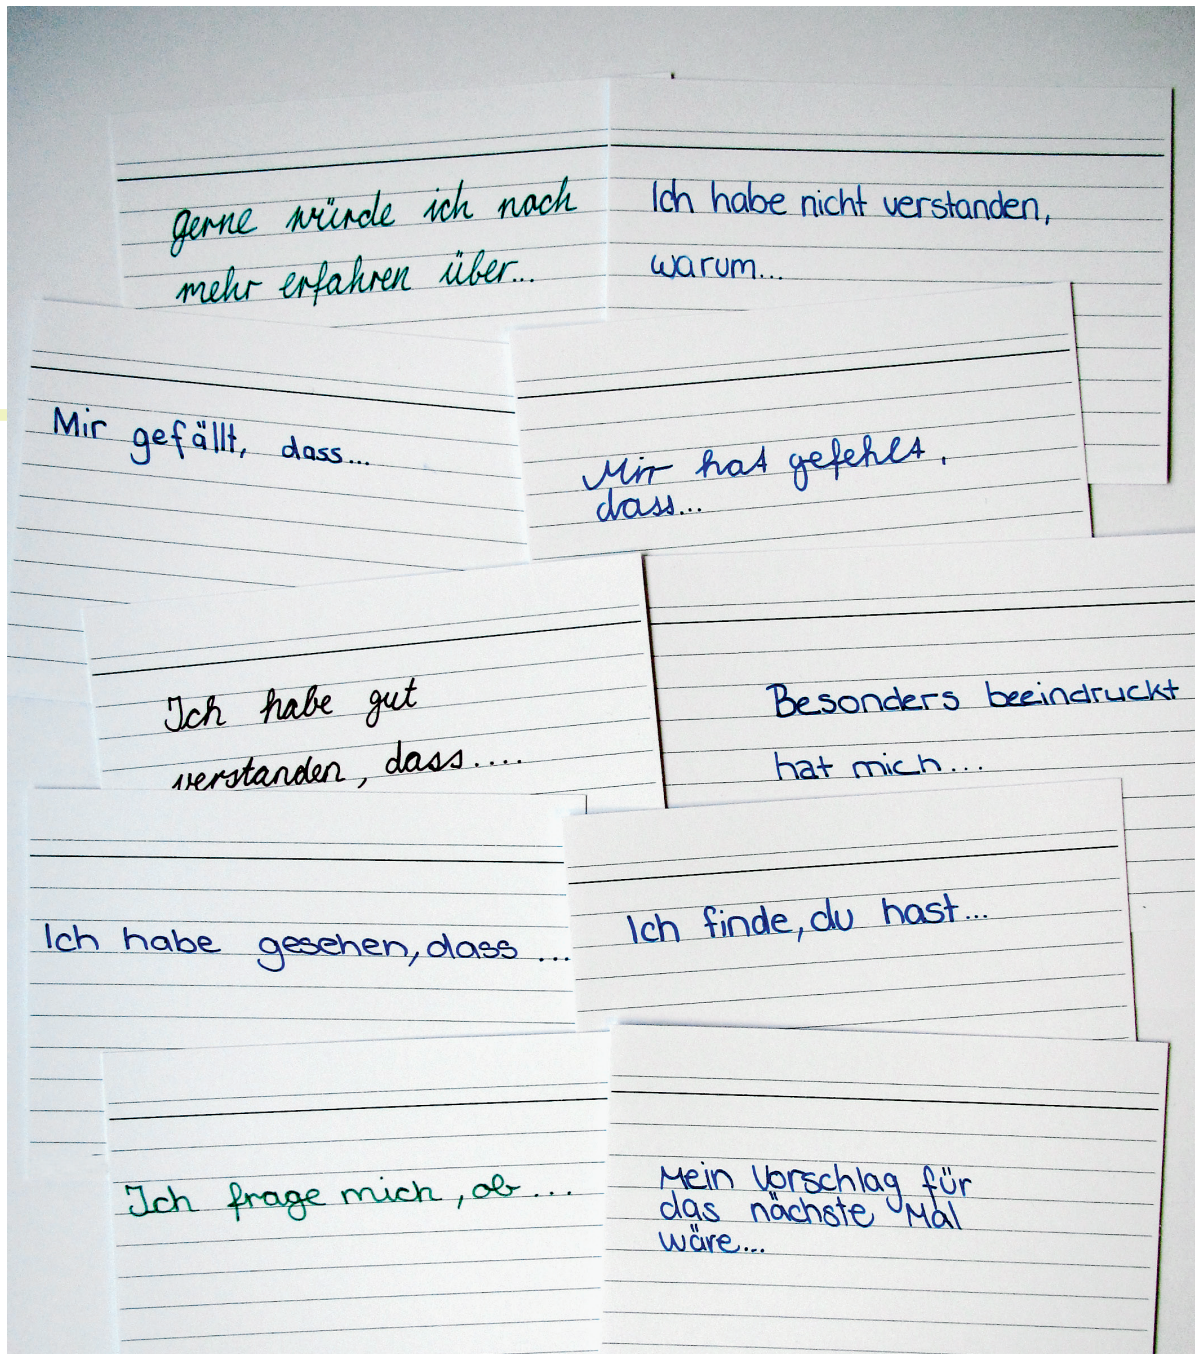 gerne würde ich noch
mehr erfahren über...
Ich habe nicht verstanden,
warum...
Mir gefällt, dass...
Mir hat gefehlt,
dass...
Ich habe gut
verstanden, dass....
Besonders beeindruckt
hat mich...
Ich habe gesehen, dass ...
Ich finde, du hast...
Ich frage mich, ob ...
Mein Vorschlag für
das nächste Mal
wäre...